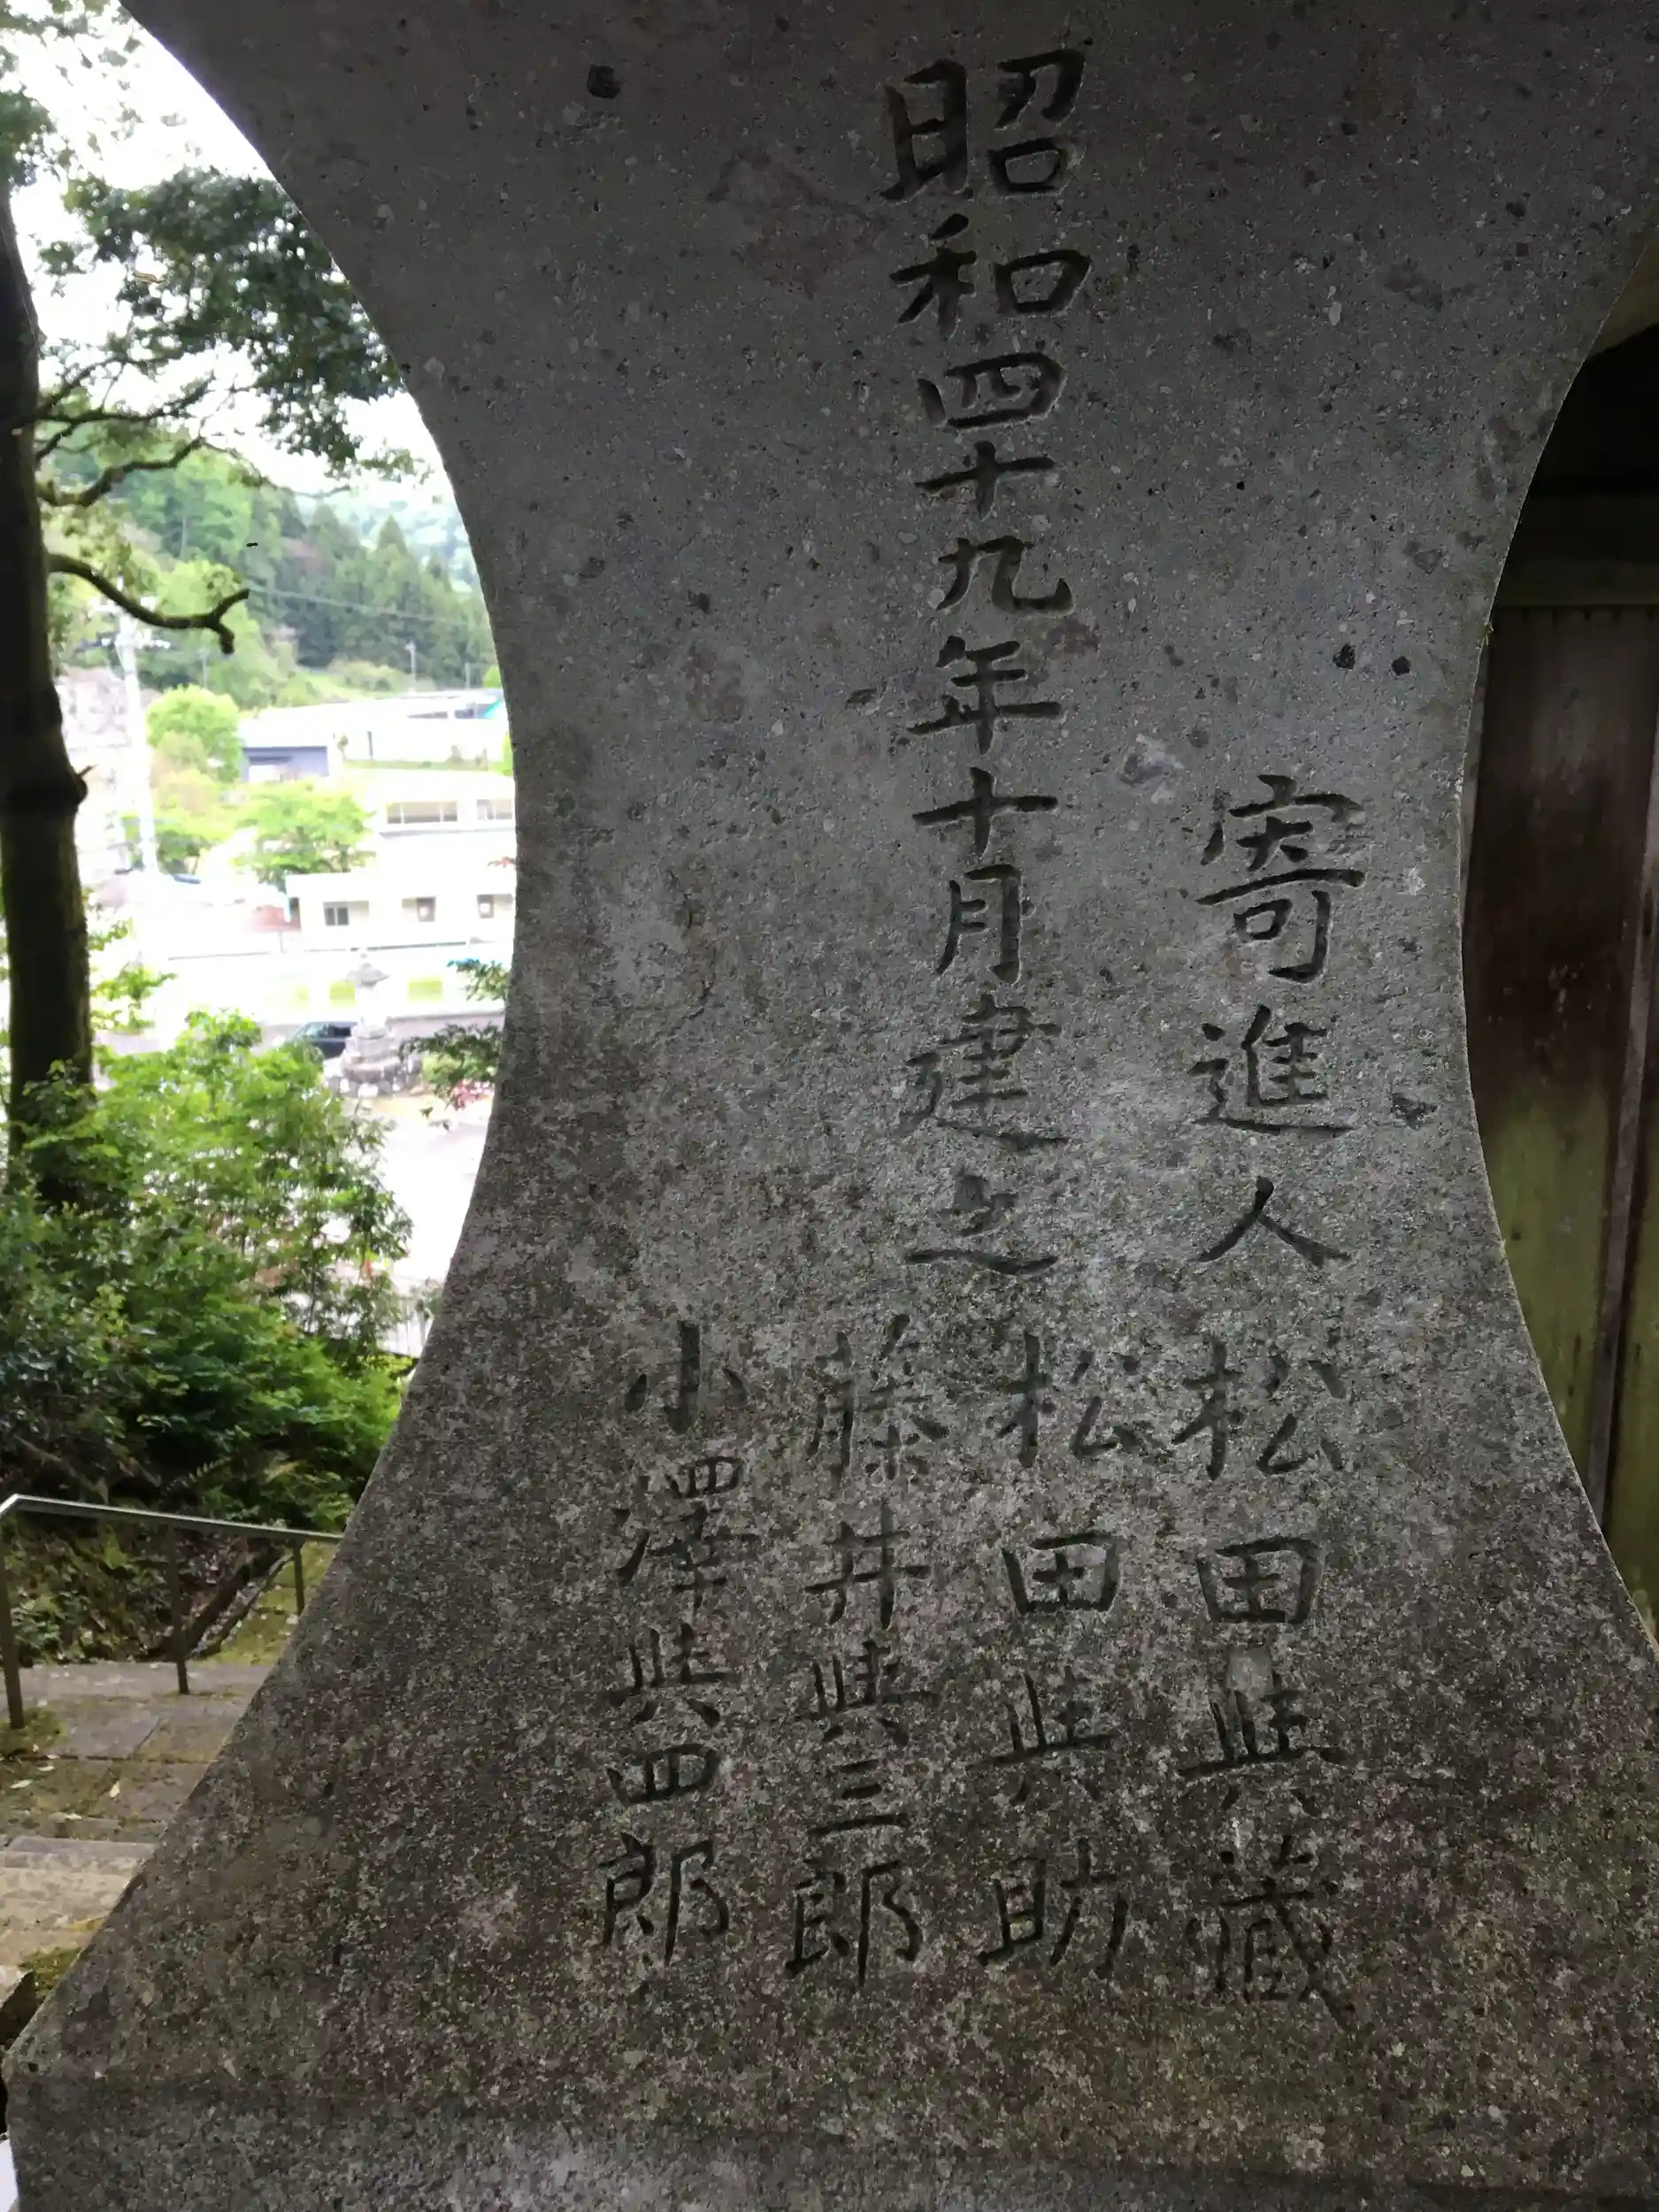 寄進人 松田與藏
昭和四十九年十月建之
松田與助
藤井與三郎
小澤與四郎